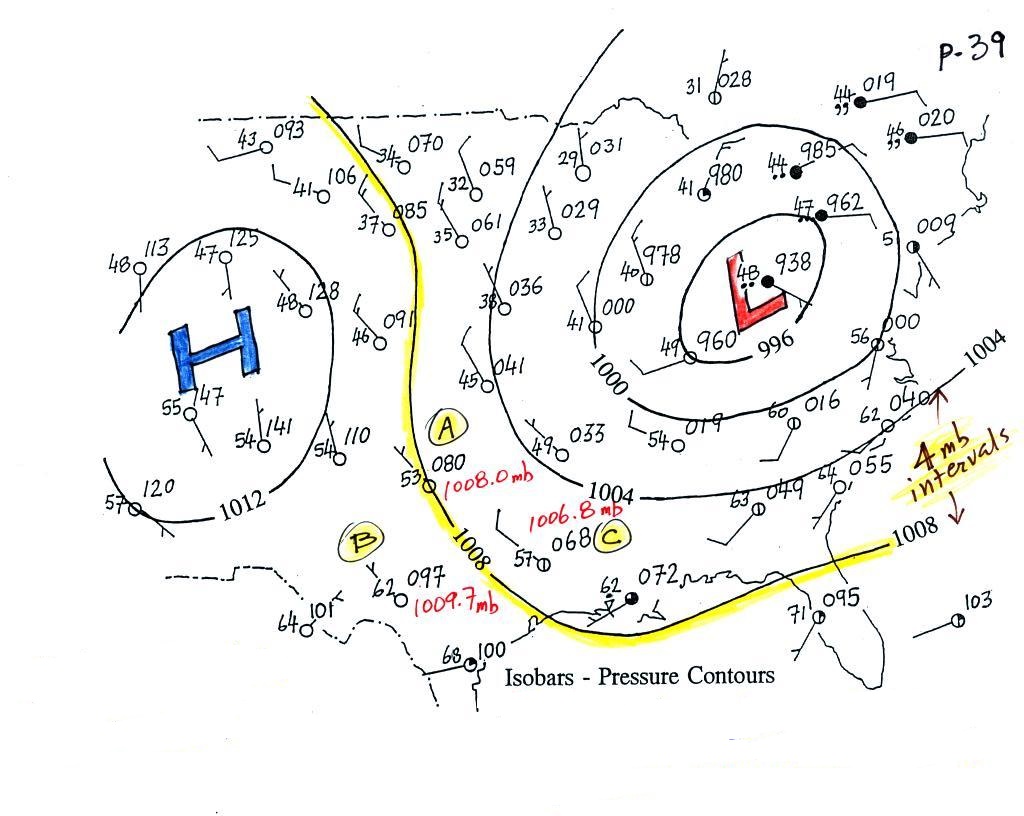 P-39
31 028
44 019
,,
46 020
,,
43 093
34 070
32 059
29 031
41 980
44 985
41 106
37 085
35 061
33 029
47 962
5 009
48 113
47 125
48 128
40 978
48 938
H
L
46 091
38 036
41 000
49 960
996
56 000
1000
1004
45 041
55 147
54 141
54 110
A
49 033
54 019
60 016
62 040
4 mb
intervals
53 080
1008.0 mb
1004
64 055
63 049
57 120
1012
1006.8 mb
1008
57 068 C
1008
B
62 097
1009.7 mb
62 072
64 101
71 095
103
68 100
Isobars - Pressure Contours